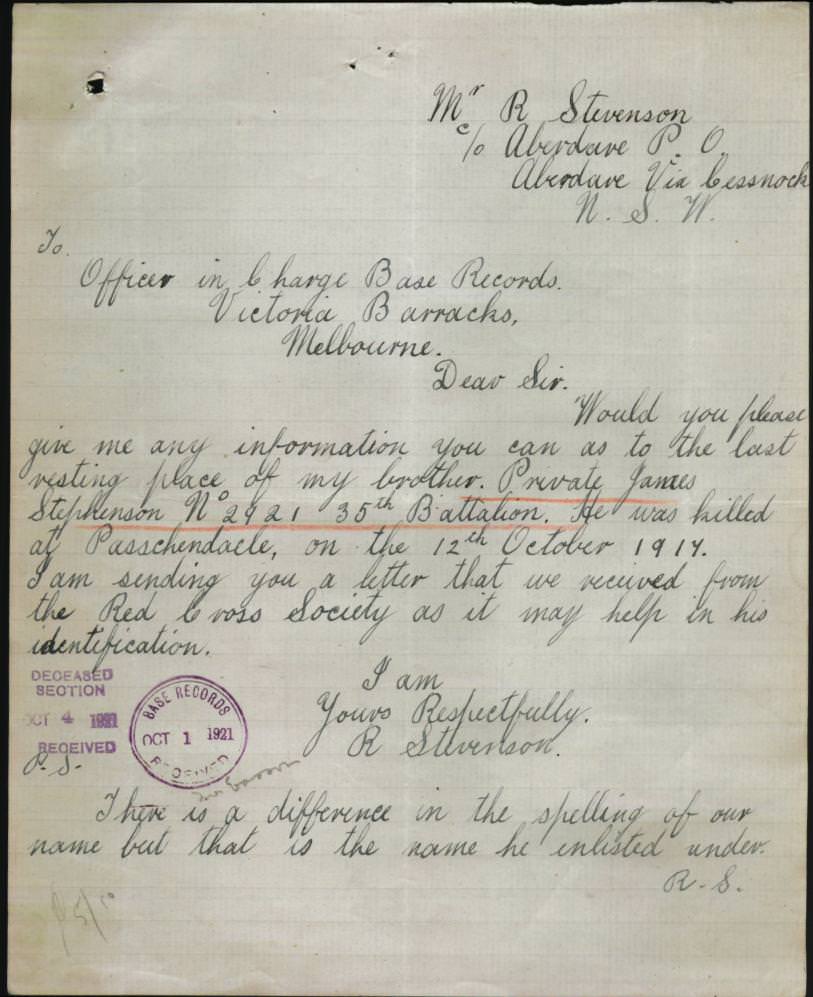 Mr R Stevenson
c/o Aberdare P. O.
Aberdare Via Cessnock
N. S. W.
To.
Officer in Charge Base Records.
Victoria Barracks,
Melbourne.
Dear Sir.
Would you please
give me any information you can as to the last
resting place of my brother. Private James
Stephenson No 2921 35th Battalion. He was killed
at Passchendaele, on the 12th October 1917.
I am sending you a letter that we received from
the Red Cross Society as it may help in his
identification.
I am
Yours Respectfully.
R Stevenson.
DECEASED
SECTION
OCT 4 1921
RECEIVED
BASE RECORDS
OCT 1 1921
RECEIVED
P.S.
There is a difference in the spelling of our
name but that is the name he enlisted under.
R. S.